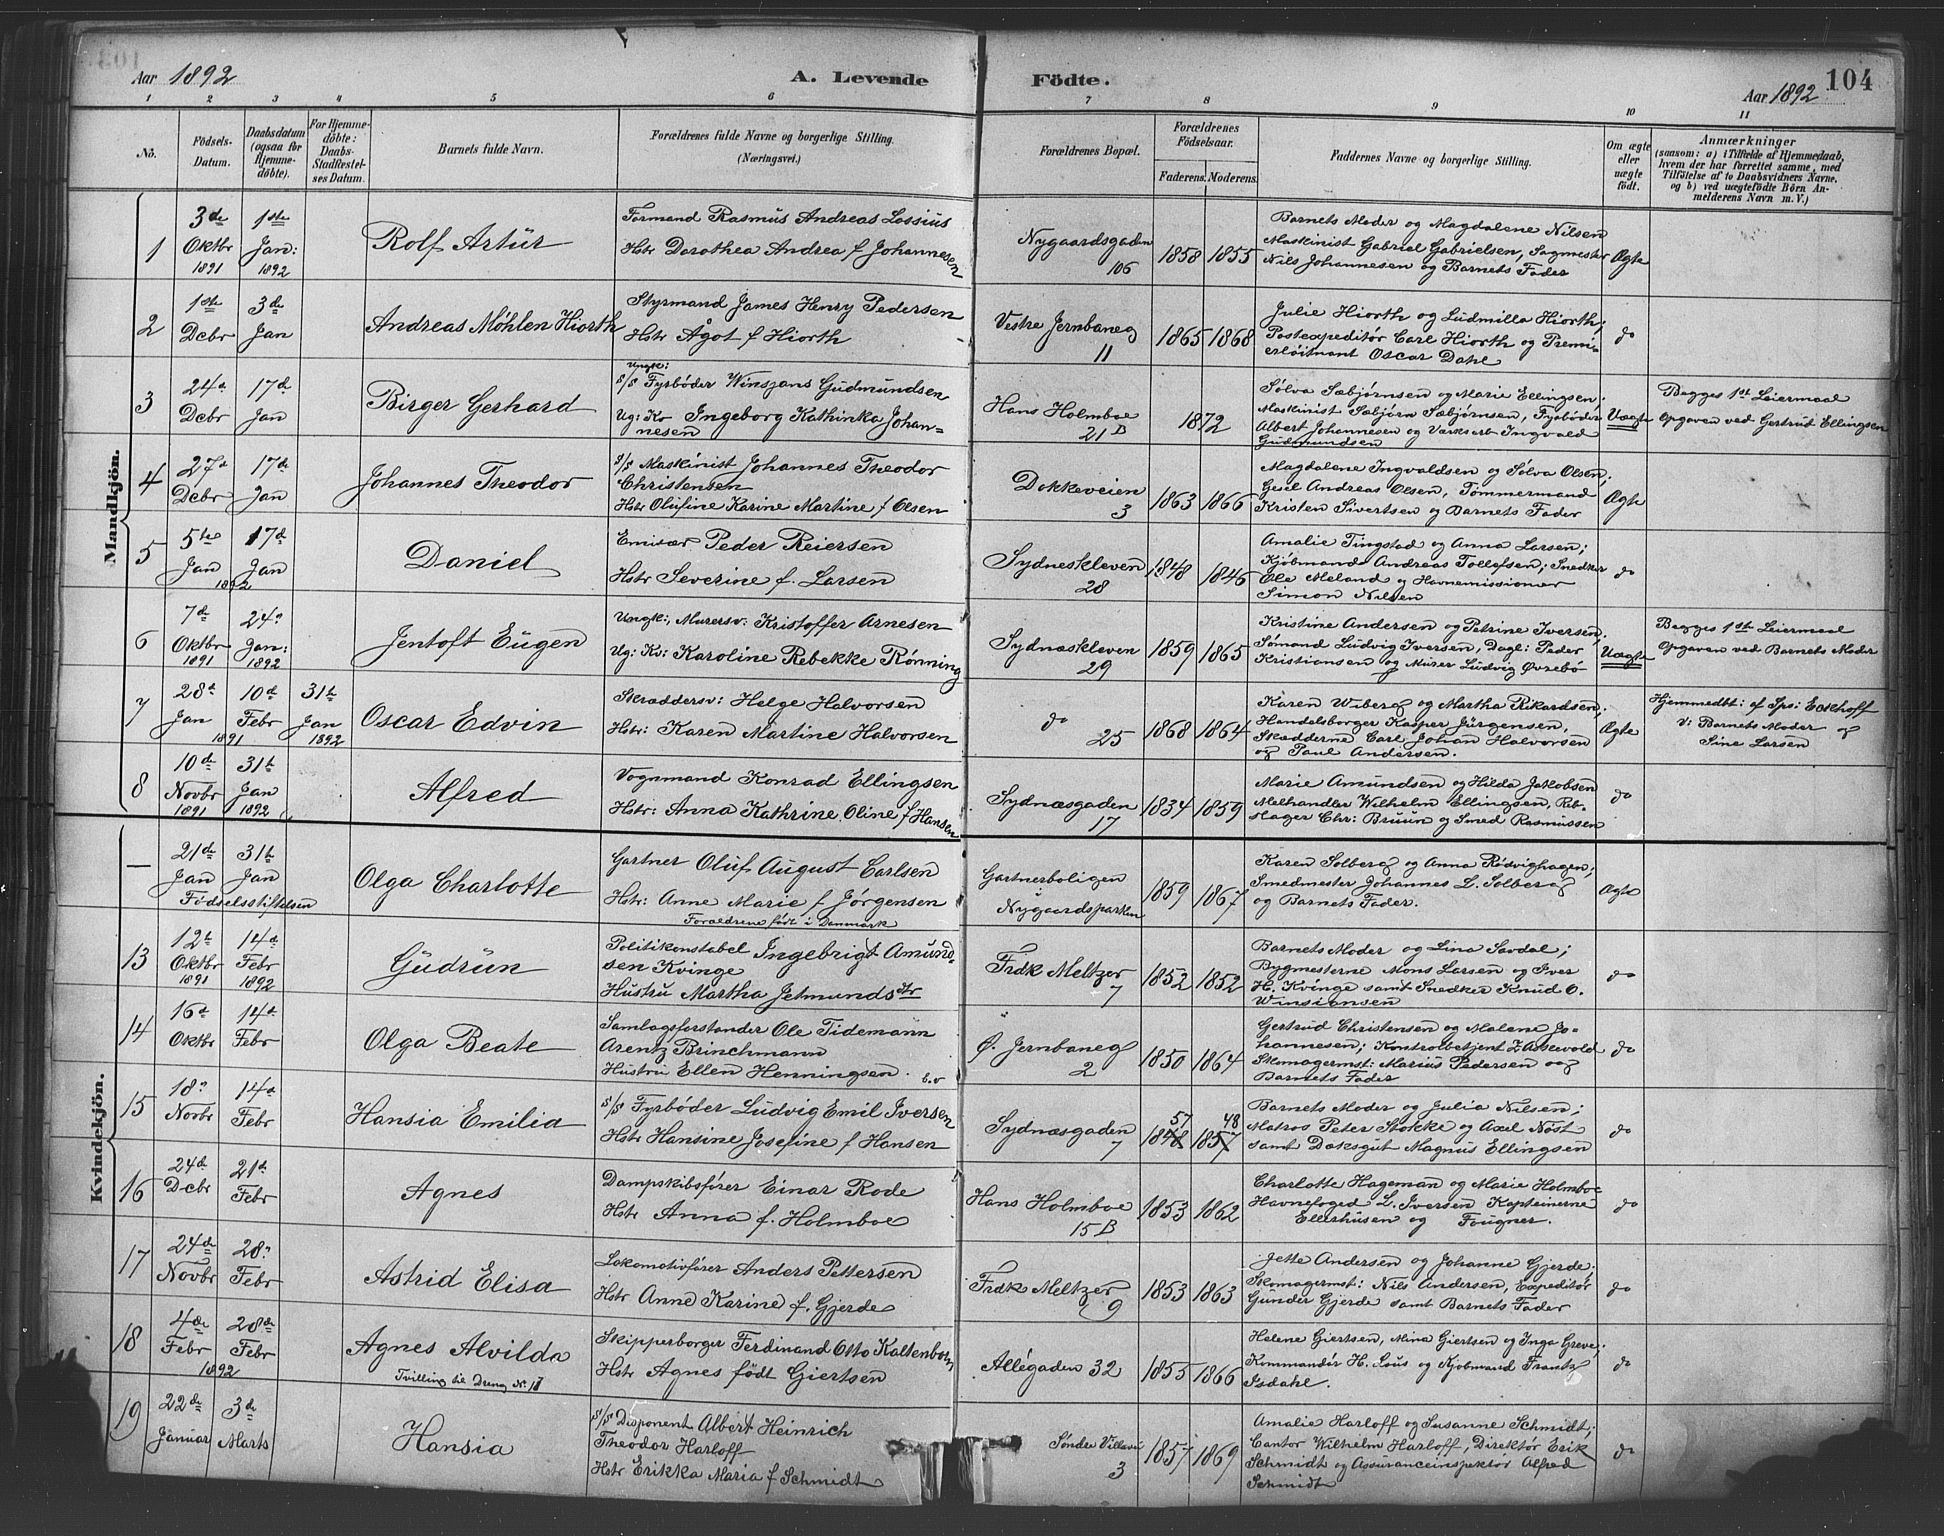 Aar 1892
A. Levende
Födte.
104
Aar 1892
1 2 3 4 5 6 7 8 9 10 11
No.
Födsels-Datum.
Daabsdatum (ogsaa for Hjemme-döbte).
For Hjemme-döbte: Daabs-Stadfæstel-ses Datum.
Barnets fulde Navn.
Forældrenes fulde Navne og borgerlige Stilling.
(Næringsvei.)
Forældrenes Bopæl.
Forældrenes Födselsaar.
Faderens. Moderens.
Faddernes Navne og borgerlige Stilling.
Om ægte eller uægte födt.
Anmærkninger
(saasom: a) i Tilfælde af Hjemmedaab,
hvem der har forrettet samme, med
Tilföielse af to Daabsvidners Navne,
og b) ved uægtefödte Börn An-
melderens Navn m. V.)
Mandkjön.
1
3de Oktbr 1891
1ste Jan: 1892
Rolf Artur
Formand Rasmus Andreas Lossius
Hstr Dorothea Andrea f Johannesen
Nygaardsgaden 106
1858 1855
Barnets Moder og Magdalene Nilsen
Maskinist Gabriel Gabrielsen, Sagmester
Nils Johannesen og Barnets Fader
Ægte
2
1ste Dcbr
3de Jan
Andreas Møhlen Hiorth
Styrmand James Henry Pedersen
Hstr Ågot f Hiorth
Vestre Jernbaneg 11
1865 1868
Julie Hiorth og Ludmilla Hiorth;
Postexpeditør Carl Hiorth og Premi-
erløitnant Oscar Dahl
do
3
24d Dcbr
17d Jan
Birger Gerhard
Ungk:
s/s Fyrbøder Winsjans Gudmundsen
Ug: Kv Ingeborg Kathinka Johan-
nesen
Hans Holmboe 21 B
1872
Sølva Sæbjørnsen og Marie Ellingsen;
Maskinist Sæbjørn Sæbjørnsen, Fyrbøder
Albert Johannesen og Værksarb Ingvald
Gudmundsen
Uægte
Begges 1st Leiermaal
Opgaven ved Gertrud Ellingsen
4
27d Dcbr
17d Jan
Johannes Theodor
s/s Maskinist Johannes Theodor
Christensen
Hstr Olufine Karine Martine f Olsen
Dokkeveien 3
1863 1866
Magdalene Ingvaldsen og Sølva Olsen;
Gesel Andreas Olsen, Tømmermand
Kristen Sivertsen og Barnets Fader
Ægte
5
5te Jan 1892
17d Jan
Daniel
Emisær Peder Reiersen
Hstr Severine f. Larsen
Sydneskleven 28
1848 1846
Amalie Tingstad og Anna Larsen;
Kjøbmand Andreas Tollefsen; Snedker
Ole Meland og Havnemissionær
Simon Nilsen
do
6
7de Oktbr 1891
24 Jan: 1892
Jentoft Eugen
Ungk:, Murersv: Kristoffer Arnesen
Ug: Kv: Karoline Rebekke Rønning
Sydnæskleven 29
1859 1865
Kristine Andersen og Petrine Iversen;
Sømand Ludvig Iversen, Dagl: Peder
Kristiansen og Murer Ludvig Øvrebø
Uægte
Begges 1ste Leiermaal
Opgaven ved Barnets Moder
7
28d Jan 1891
10d Febr
31t Jan 1892
Oscar Edvin
Skræddersv: Helge Halvorsen
Hstr: Karen Martine Halvorsen
do 25
1868 1864
Karen Wiberg og Martha Rikardsen;
Handelsborger Kasper Jürgensen,
Skrædderne Carl Johan Halvorsen
og Paul Andersen.
Ægte
Hjemmedbt: af Sps: Eckhoff
V: Barnets Moder og
Sine Larsen
8
10d Novbr 1891
31t Jan 1892
Alfred
Vognmand Konrad Ellingsen
Hstr: Anna Kathrine Oline f Hansen
Sydnæsgaden 17
1834 1859
Marie Amundsen og Hilda Jakobsen
Melhandler Wilhelm Ellingsen, Reb-
slager Chr: Bruun og Smed Rasmussen
do
Kvindekjön.
—
21de Jan
31t Jan
Fødselsstiftelsen
Olga Charlotte
Gartner Oluf August Carlsen
Hstr: Anne Marie f Jørgensen
Forældrene født i Danmark
Gartnerboligen
Nygaardsparken
1859 1867
Karen Solberg og Anna Rødvighagen;
Smedmester Johannes L. Solberg
og Barnets Fader.
Ægte
13
12t Oktbr 1891
14d Febr 1892
Gudrun
Politikonstabel Ingebrigt Amund-
sen Kvinge
Hustru Martha Jetmundsdtr
Frdk Meltzer 7
1852 1852
Barnets Moder og Lina Sævdal;
Bygmesterne Mons Larsen og Iver
H. Kvinge samt Snedker Knud O.
Winsjansen
do
14
16d Oktbr
14d Febr
Olga Beate
Samlagsforstander Ole Tidemann
Arentz Brinchmann
Hustru Ellen Henningsen
Ø. Jernbaneg 2
1850 1864
Gertrud Christensen og Malene Jo-
hannesen; Kontrolbetjent Z Askevold
Skomagermst: Marius Pedersen og
Barnets Fader
do
15
18 Novbr
14d Febr
Hansia Emilia
s/s Fyrbøder Ludvig Emil Iversen
Hstr Hansine Josefine f Hansen
Sydnæsgaden 7
57 48
1848 1857
Barnets Moder og Julia Nilsen;
Matros Peter Stokke og Axel Nøst
samt Doksgut Magnus Ellingsen
do
16
24de Dcbr
21d Febr
Agnes
Dampskibsfører Einar Rode
Hstr Anna f. Holmboe
Hans Holmboe 15 B
1853 1862
Charlotte Hageman og Marie Holmboe
Havnefoged L. Iversen Kapteinerne
Ellerhusen og Fougner.
do
17
24de Novbr
28 Febr
Astrid Elisa
Lokomotivfører Anders Pettersen
Hstr Anne Karine f. Gjerde
Frdk Meltzer 9
1853 1863
Jette Andersen og Johanne Gjerde.
Skomagermst: Nils Andersen, Expeditør
Gunder Gjerde samt Barnets Fader
do
18
4de Febr 1892
28de Febr
Agnes Alvilda
Tvilling til Dreng No. 17
Skipperborger Ferdinand Otto Kaltenborn
Hstr Agnes født Giertsen
Allégaden 32
1855 1866
Helene Giertsen, Mina Giertsen og Inga Greve;
Kommandør H. Lous og Kjøbmand Frantz
Isdahl.
do
19
22de Januar
3de Marts
Hansia
s/s Disponent Albert Heinrich
Theodor Harloff
Hstr Erikka Maria f Schmidt
Søndre Villavei 3
1857 1869
Amalie Harloff og Susanne Schmidt;
Cantor Wilhelm Harloff, Direktør Erik
Schmidt og Assuranceinspektør Alfred
Schmidt
do